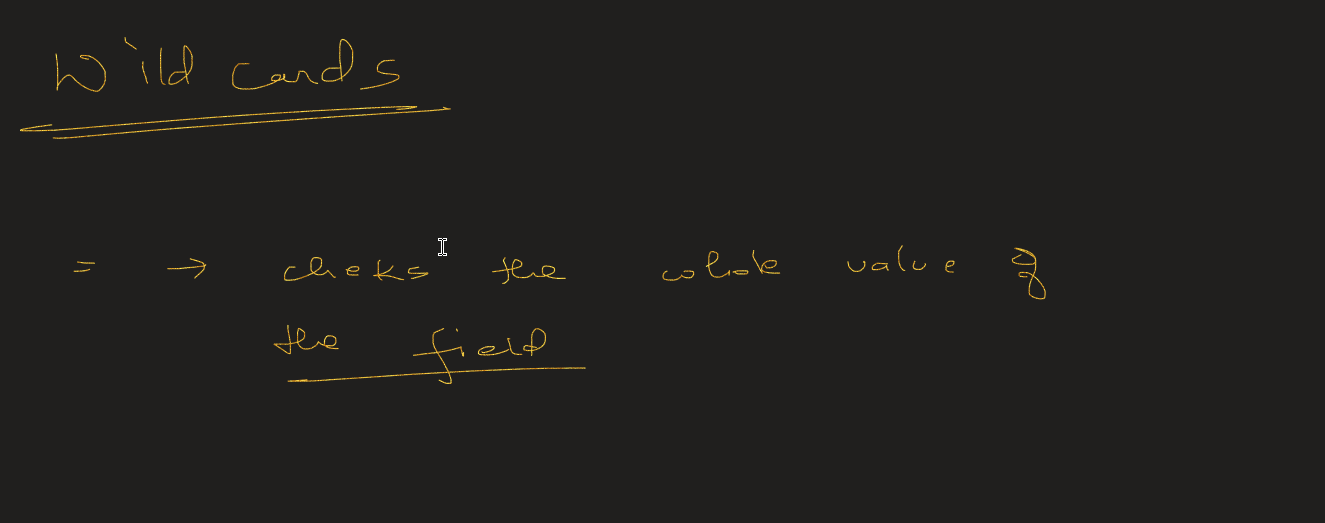 Wild cards
= → cheks the whole value of
the field